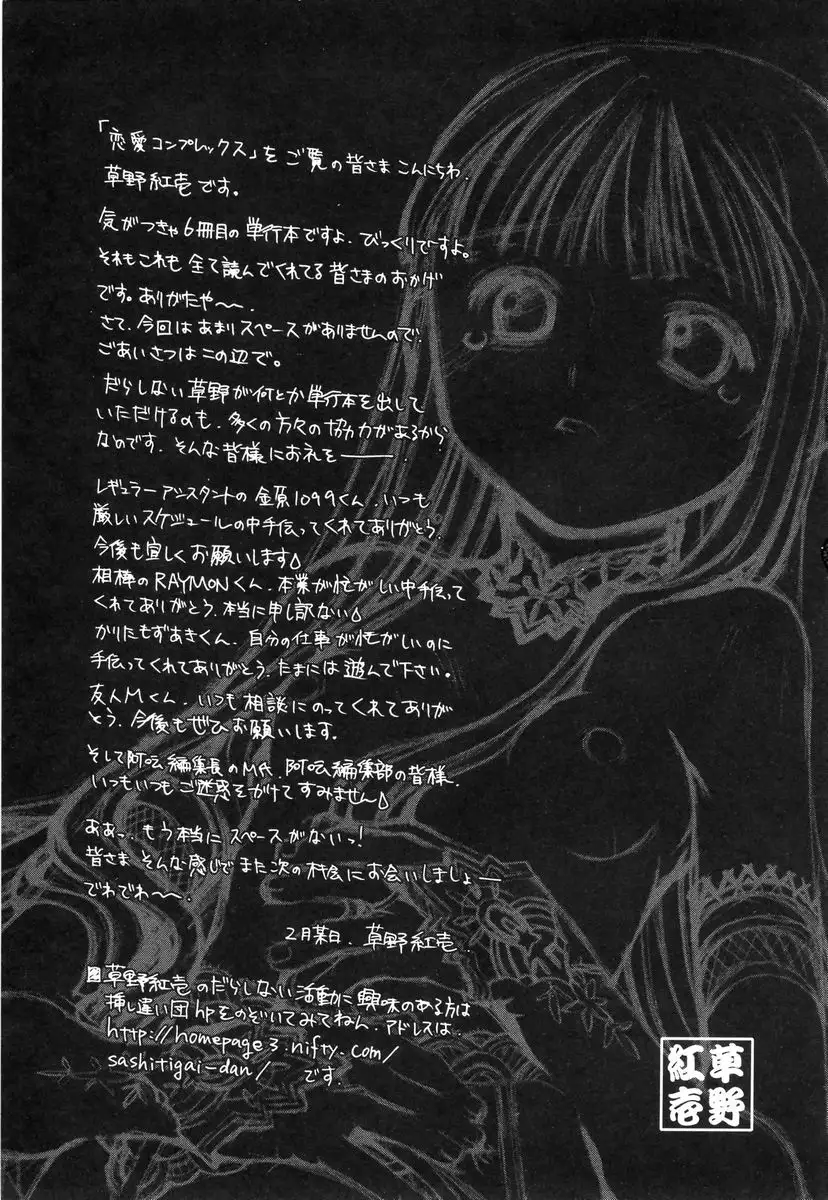 「恋愛コンプレックス」を ご覧の皆さま こんにちわ.
草野紅壱です。
気がつきゃ6冊目の単行本ですよ. びっくりですよ。
それもこれも 全て読んでくれてる 皆さまのおかげ
です。ありがたや〜〜.
さて、今回は あまり スペースがありませんので.
ごあいさつは この辺で。
だらしない草野が何とか単行本を出して
いただけるのも、多くの方々の協力があるから
なのです. そんな皆様にお礼を───.
レギュラーアシスタントの 金原1099くん. いつも
厳しいスケジュールの中手伝ってくれてありがとう.
今後も宜しくお願いします△
相棒のRAYMONくん. 本業が忙がしい中手伝って
くれてありがとう. 本当に申し訳ない△
かりたもずあきくん. 自分の仕事が忙がしいのに
手伝ってくれてありがとう. たまには遊んで下さい。
友人Mくん. いつも相談にのってくれてありが
とう. 今後もぜひお願いします.
そして阿吽編集長のM氏. 阿吽編集部の皆様.
いつもいつもご迷惑をかけてすみません△
ああっ. もう本当にスペースがないっ!
皆さま そんな感じでまた次の機会にお会いしましょー
でわでわ〜〜.
2月某日. 草野紅壱.
草野紅壱のだらしない活動に興味のある方は
挿し違い団hpをのぞいてみてねん. アドレスは.
http://homepage3.nifty.com/
sashitigai-dan/ です.
草野
紅壱